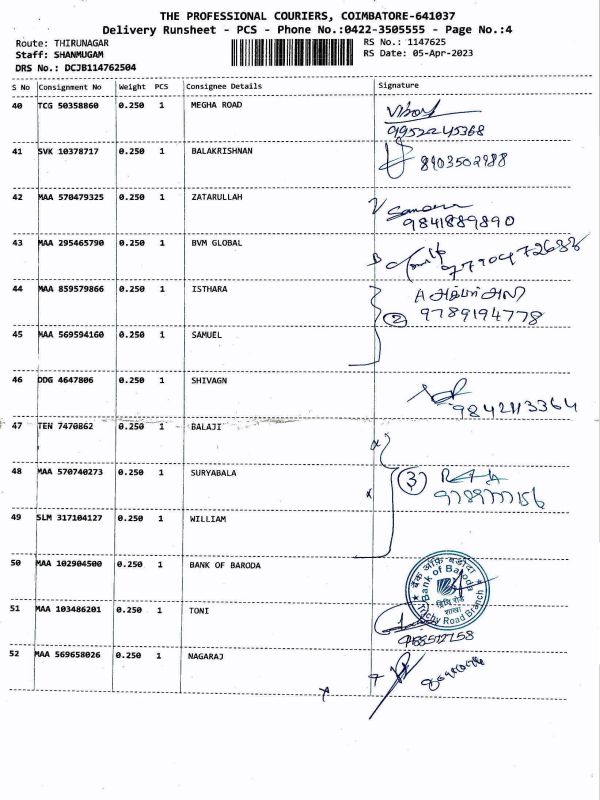 THE PROFESSIONAL COURIERS, COIMBATORE-641037
Delivery Runsheet - PCS - Phone No.:0422-3505555 - Page No.:4
Route: THIRUNAGAR
Staff: SHANMUGAM
DRS No.: DCJB114762504
RS No.: 1147625
RS Date: 05-Apr-2023
S No Consignment No Weight PCS Consignee Details Signature
40 TCG 50358860 0.250 1 MEGHA ROAD
9952245368
41 SVK 10378717 0.250 1 BALAKRISHNAN
8903502988
42 MAA 570479325 0.250 1 ZATARULLAH
9841889890
43 MAA 295465790 0.250 1 BVM GLOBAL
44 MAA 859579866 0.250 1 ISTHARA
9789194778
2
45 MAA 569594160 0.250 1 SAMUEL
46 DDG 4647806 0.250 1 SHIVAGN
9842113364
47 TEN 7470862 0.250 1 BALAJI
48 MAA 570740273 0.250 1 SURYABALA
3
49 SLM 317104127 0.250 1 WILLIAM
50 MAA 102904500 0.250 1 BANK OF BARODA
बैंक ऑफ़ बड़ौदा
Bank of Baroda
शाखा
Trichy Road Branch
51 MAA 103486201 0.250 1 TONI
52 MAA 569658026 0.250 1 NAGARAJ